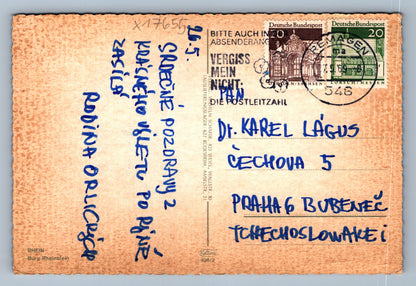 X17655
26.5.
SRDEČNÉ POZDRAVY Z
KRÁSNÉHO VÝLETU PO RÝNĚ
ZASÍLÁ
RODINA
RHEIN
Burg Rheinstein
BITTE AUCH IN
ABSENDERANG
VERGISS
MEIN
NICHT:
DIE POSTLEITZAHL
Deutsche Bundespost
Deutsche Bundespost
20
REMAGEN
546
PAN
Dr. KAREL LÁGUS
ČECHOVA 5
PRAHA 6 BUBENEČ
TCHECHOSLOWAKEI